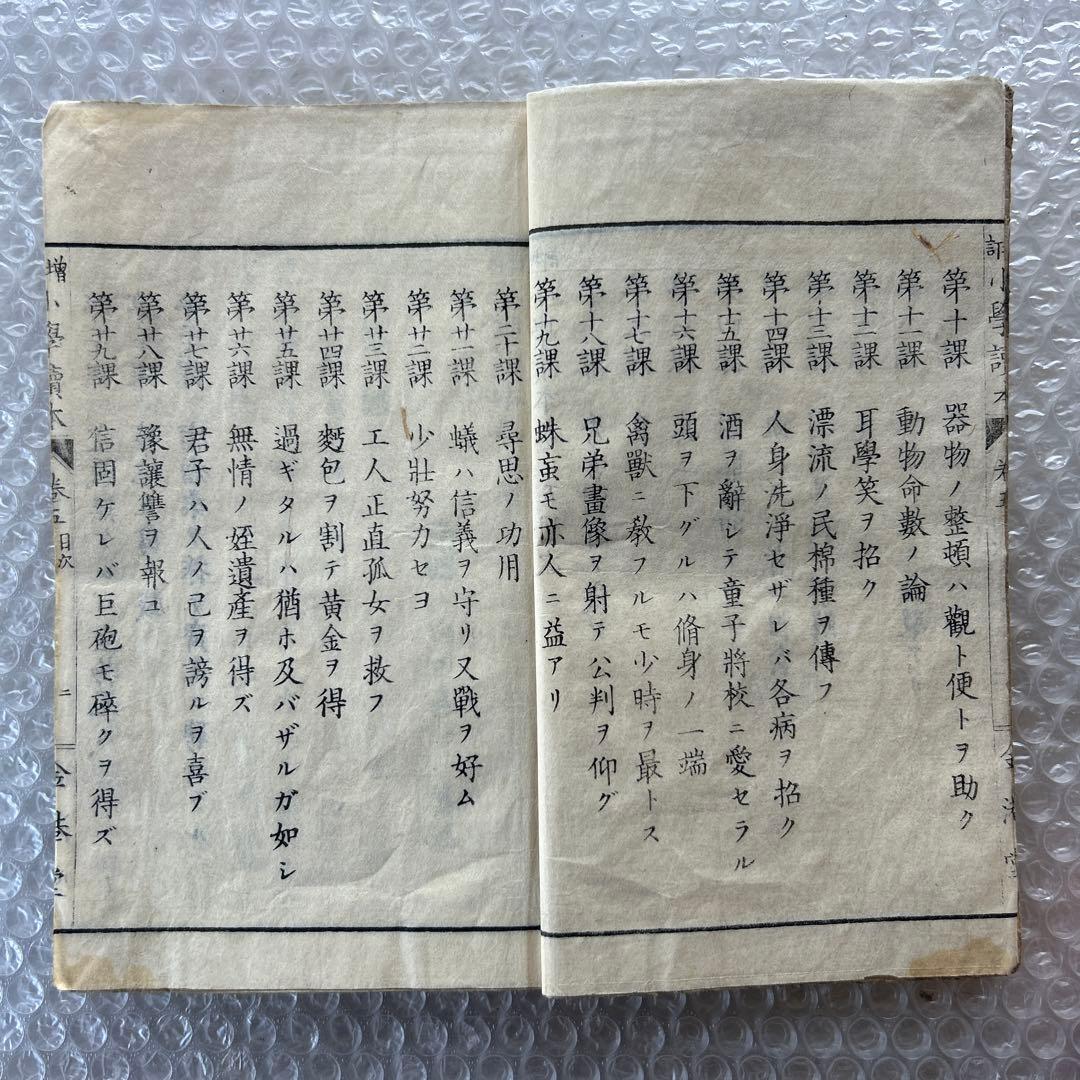 小學讀本
卷五
金港堂
第十課 器物ノ整頓ハ觀ト便トヲ助ク
第十一課 動物命數ノ論
第十二課 耳學笑ヲ招ク
第十三課 漂流ノ民棉種ヲ傳フ
第十四課 人身洗淨セザレバ各病ヲ招ク
第十五課 酒ヲ辭シテ童子將校ニ愛セラル
第十六課 頭ヲ下グルハ脩身ノ一端
第十七課 禽獸ニ敎フルモ少時ヲ最トス
第十八課 兄弟畫像ヲ射テ公判ヲ仰グ
第十九課 蛛䖟モ亦人ニ益アリ
第二十課 尋思ノ功用
第廿一課 蟻ハ信義ヲ守リ又戰ヲ好ム
第廿二課 少壯努力セヨ
第廿三課 工人正直孤女ヲ救フ
第廿四課 麪包ヲ割テ黃金ヲ得
第廿五課 過ギタルハ猶ホ及バザルガ如シ
第廿六課 無情ノ姪遺產ヲ得ズ
第廿七課 君子ハ人ノ己ヲ謗ルヲ喜ブ
第廿八課 豫讓讐ヲ報ユ
第廿九課 信固ケレバ巨砲モ碎クヲ得ズ
增小學讀本
卷五目次
二
金港堂